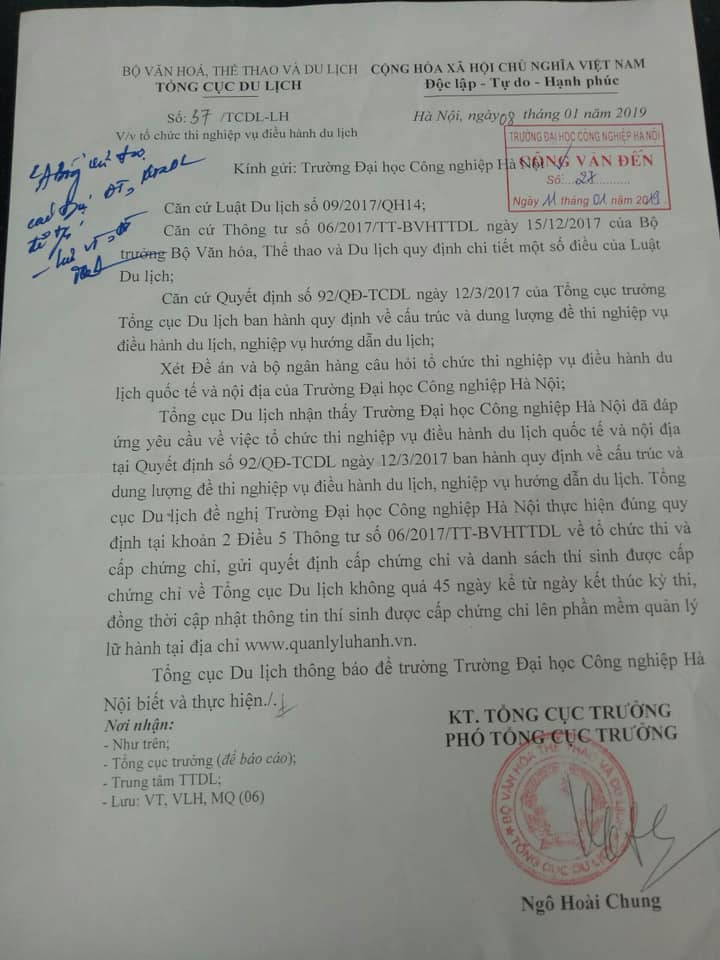 BỘ VĂN HOÁ, THỂ THAO VÀ DU LỊCH
TỔNG CỤC DU LỊCH
CỘNG HÒA XÃ HỘI CHỦ NGHĨA VIỆT NAM
Độc lập - Tự do - Hạnh phúc
Số: 37 /TCDL-LH
V/v tổ chức thi nghiệp vụ điều hành du lịch
Hà Nội, ngày 08 tháng 01 năm 2019
TRƯỜNG ĐẠI HỌC CÔNG NGHIỆP HÀ NỘI
CÔNG VĂN ĐẾN
Số:...28...........
Ngày 11 tháng 01 năm 2019
Kính gửi: Trường Đại học Công nghiệp Hà Nội
Căn cứ Luật Du lịch số 09/2017/QH14;
Căn cứ Thông tư số 06/2017/TT-BVHTTDL ngày 15/12/2017 của Bộ
trưởng Bộ Văn hóa, Thể thao và Du lịch quy định chi tiết một số điều của Luật
Du lịch;
Căn cứ Quyết định số 92/QĐ-TCDL ngày 12/3/2017 của Tổng cục trưởng
Tổng cục Du lịch ban hành quy định về cấu trúc và dung lượng đề thi nghiệp vụ
điều hành du lịch, nghiệp vụ hướng dẫn du lịch;
Xét Đề án và bộ ngân hàng câu hỏi tổ chức thi nghiệp vụ điều hành du
lịch quốc tế và nội địa của Trường Đại học Công nghiệp Hà Nội;
Tổng cục Du lịch nhận thấy Trường Đại học Công nghiệp Hà Nội đã đáp
ứng yêu cầu về việc tổ chức thi nghiệp vụ điều hành du lịch quốc tế và nội địa
tại Quyết định số 92/QĐ-TCDL ngày 12/3/2017 ban hành quy định về cấu trúc và
dung lượng đề thi nghiệp vụ điều hành du lịch, nghiệp vụ hướng dẫn du lịch. Tổng
cục Du lịch đề nghị Trường Đại học Công nghiệp Hà Nội thực hiện đúng quy
định tại khoản 2 Điều 5 Thông tư số 06/2017/TT-BVHTTDL về tổ chức thi và
cấp chứng chỉ, gửi quyết định cấp chứng chỉ và danh sách thí sinh được cấp
chứng chỉ về Tổng cục Du lịch không quá 45 ngày kể từ ngày kết thúc kỳ thi,
đồng thời cập nhật thông tin thí sinh được cấp chứng chỉ lên phần mềm quản lý
lữ hành tại địa chỉ www.quanlyluhanh.vn.
Tổng cục Du lịch thông báo để trường Trường Đại học Công nghiệp Hà
Nội biết và thực hiện./.
Nơi nhận:
- Như trên;
- Tổng cục trưởng (để báo cáo);
- Trung tâm TTDL;
- Lưu: VT, VLH, MQ (06)
KT. TỔNG CỤC TRƯỞNG
PHÓ TỔNG CỤC TRƯỞNG
BỘ VĂN HÓA THỂ THAO VÀ DU LỊCH
TỔNG CỤC DU LỊCH
Ngô Hoài Chung